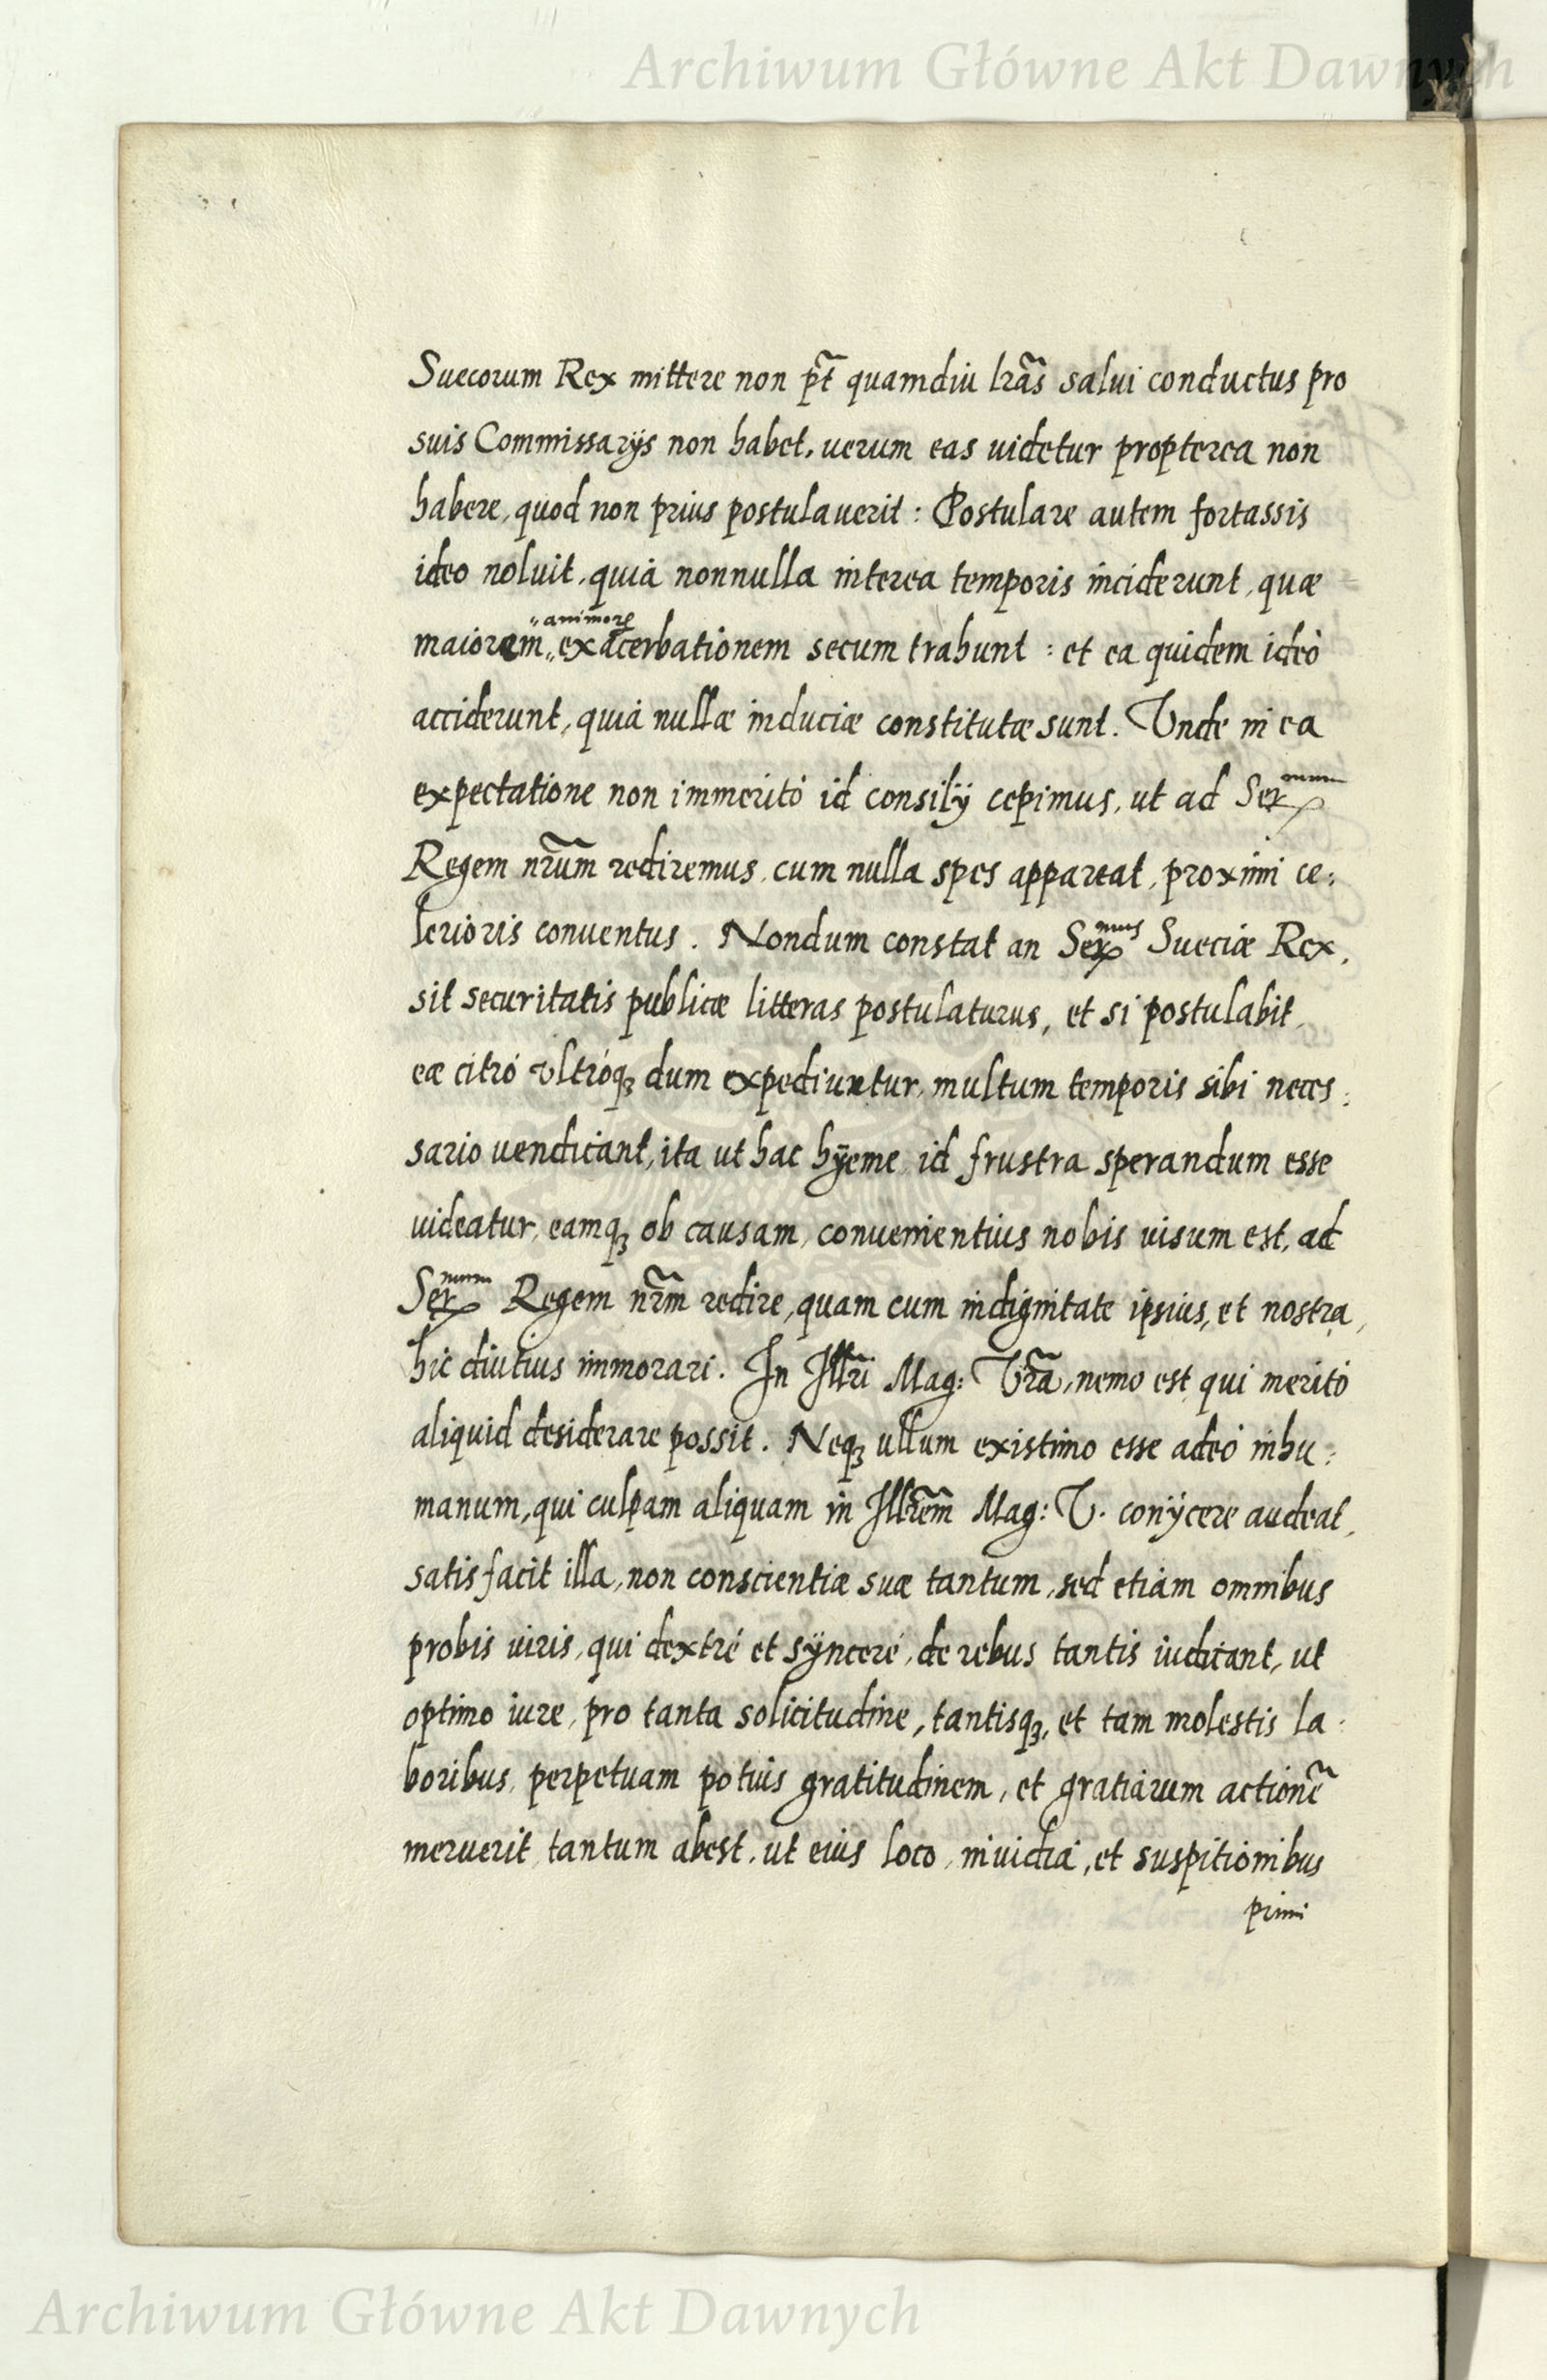 Archiwum Główne Akt Dawnych
Suecorum Rex mittere non p̃t quamdiu lrãs salui conductus pro
suis Commissarÿs non habet, uerum eas uidetur propterea non
habere, quod non prius postulauerit : Postulare autem fortassis
ideo noluit, quià nonnulla interea temporis inciderunt, quæ
maiorem „animorꝝ„ exacerbationem secum trahunt : et ea quidem ideò
acciderunt, quià nullæ induciæ constitutæ sunt. Vnde in ea
expectatione non immeritò id consilÿ cepimus, ut ad Ser^mum
Regem nr̃um rediremus, cum nulla spes appareat, proximi ce:
lerioris conuentus. Nondum constat an Ser^mus Sueciæ Rex,
sit securitatis publicæ litteras postulaturus, et si postulabit,
eæ citrò vltròqꝫ dum expediuntur, multum temporis sibi neces:
sario uendicant, ita ut hac hÿeme id frustra sperandum esse
uideatur, eamqꝫ ob causam, conuenientius nobis uisum est, ad
Ser^mum Regem nr̃m redire, quam cum indignitate ipsius, et nostra,
hic diutius immorari. In Illr̃i Mag: Vrã, nemo est qui meritò
aliquid desiderare possit. Neqꝫ ullum existimo esse adeò inhu:
manum, qui culpam aliquam in Illrẽm Mag: V. conÿcere audeat,
satisfacit illa, non conscientiæ suæ tantum, sed etiam omnibus
probis uiris, qui dextrè et sÿncerè, de rebus tantis iudicant, ut
optimo iure, pro tanta solicitudine, tantisqꝫ, et tam molestis la:
boribus, perpetuam potius gratitudinem, et gratiarum actionẽ
meruerit, tantum abest, ut eius loco, inuidià, et suspitionibus
primi
Archiwum Główne Akt Dawnych